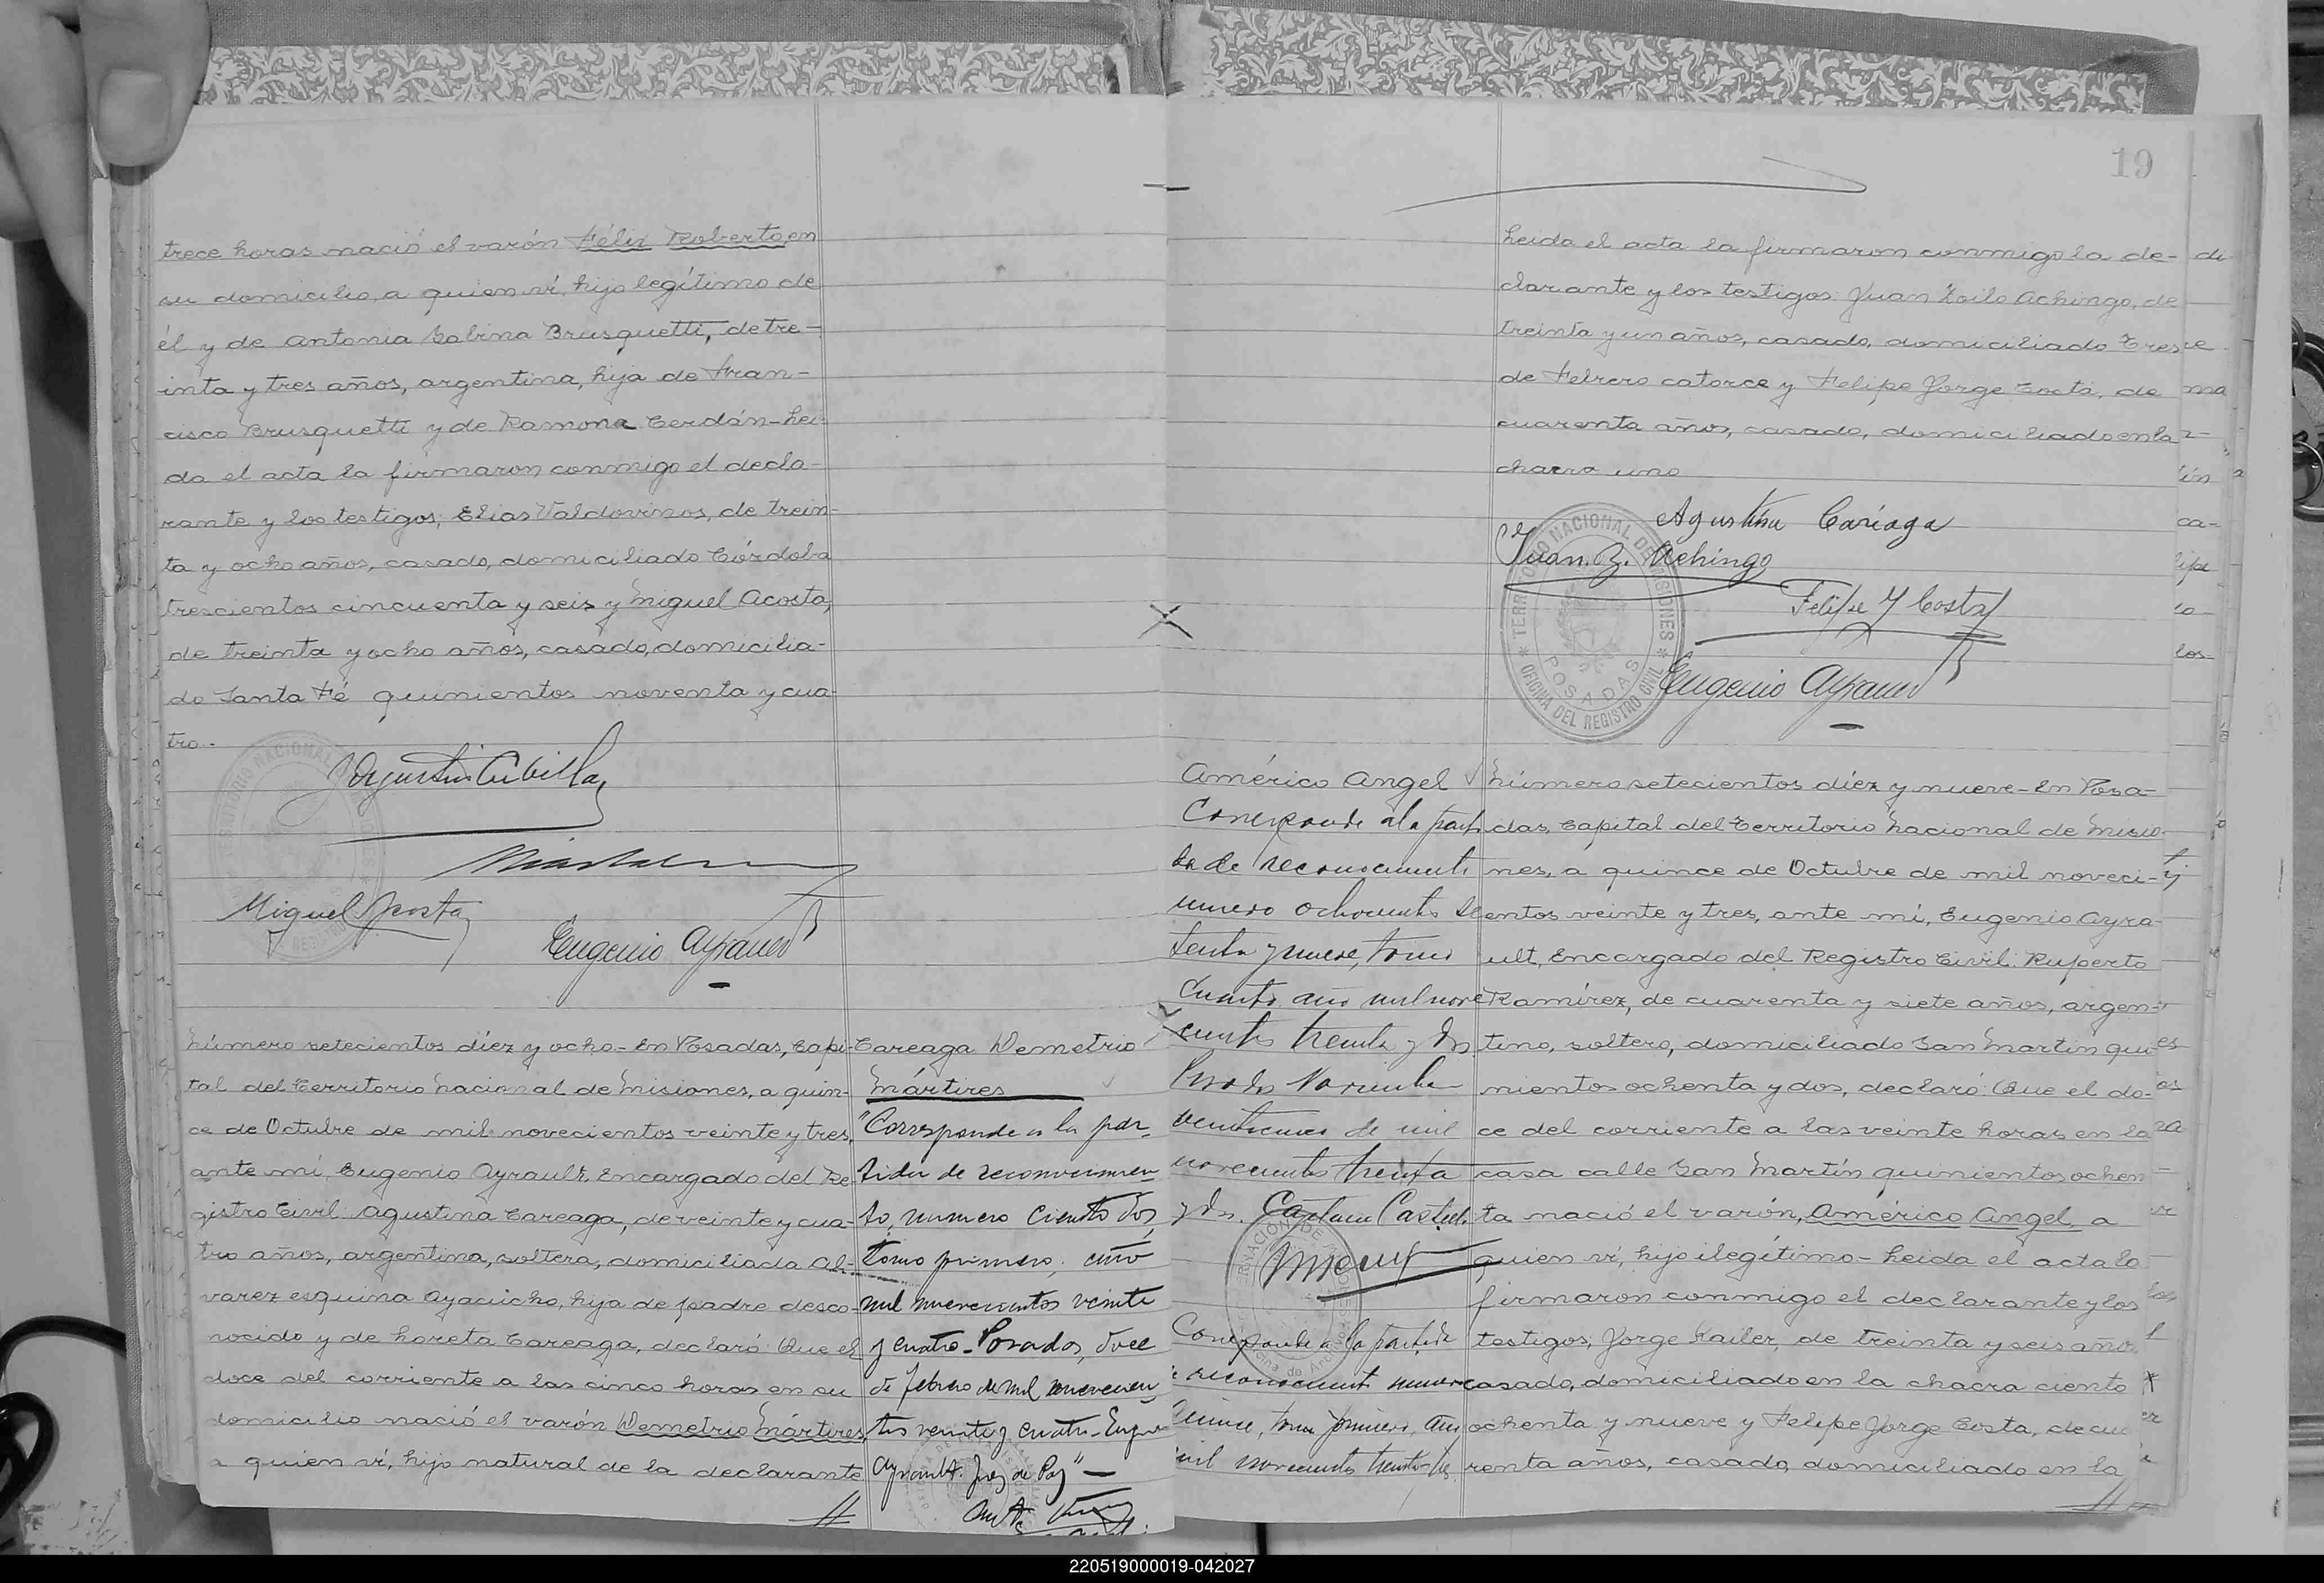 trece horas nació el varón Félix Roberto, en
su domicilio, a quien ví, hijo legítimo de
él y de Antonia Sabina Brusquetti, de tre-
inta y tres años, argentina, hija de Fran-
cisco Brusquetti y de Ramona Cerdán- Lei-
da el acta la firmaron conmigo el decla-
rante y los testigos: Elias Valdovinos, de trein-
ta y ocho años, casado, domiciliado Córdoba
trescientos cincuenta y seis y Miguel Acosta,
de treinta y ocho años, casado, domicilia-
do Santa Fé quinientos noventa y cua-
tro.-
Agustin Cubilla
Miguel Acosta
Eugenio Ayrault
Número setecientos diez y ocho- En Posadas, Capi-
tal del Territorio Nacional de Misiones, a quin-
ce de Octubre de mil novecientos veinte y tres,
ante mí, Eugenio Ayrault, Encargado del Re-
gistro Civil: Agustina Careaga, de veinte y cua-
tro años, argentina, soltera, domiciliada Al-
varez esquina Ayacucho, hija de padre desco-
nocido y de Loreta Careaga, declaró: Que el
doce del corriente a las cinco horas en su
domicilio nació el varón Demetrio Mártires,
a quien ví, hijo natural de la declarante
Careaga Demetrio
Mártires
"Corresponde a la par-
tida de reconocimien-
to, número ciento dos,
tomo primero, año
mil novecientos veinte
y cuatro- Posadas, doce
de febrero de mil novecien-
tos veinte y cuatro- Eugenio
Ayrault. Juez de Paz"-
19
Leida el acta la firmaron conmigo la de-
clarante y los testigos: Juan Zoilo Achingo, de
treinta y un años, casado, domiciliado Tres
de Febrero catorce y Felipe Jorge Costa, de
cuarenta años, casado, domiciliado en la
chacra uno
Agustina Cariaga
Juan Z. Achingo
Felipe J Costa
Eugenio Ayrault
TERRITORIO NACIONAL DE MISIONES
POSADAS
OFICINA DEL REGISTRO CIVIL
Américo Angel
Corresponde a la parti
da de reconocimiento
número ochocientos se
tenta y nueve, tomo
cuarto, año mil nove
cientos treinta y dos
Posadas Noviembre
de mil
novecientos treinta
y dos.
Corresponde a la partida
de reconocimiento número
quince, tomo primero, año
mil novecientos treinta y tres
Número setecientos diez y nueve- En Posa-
das, Capital del Territorio Nacional de Misio-
nes, a quince de Octubre de mil noveci-
entos veinte y tres, ante mí, Eugenio Ayra-
ult, Encargado del Registro Civil: Ruperto
Ramírez, de cuarenta y siete años, argen-
tino, soltero, domiciliado San Martín qui-
nientos ochenta y dos, declaró: Que el do-
ce del corriente a las veinte horas en la
casa calle San Martín quinientos ochen
ta nació el varón, Américo Angel, a
quien ví, hijo ilegítimo- Leida el acta la
firmaron conmigo el declarante y los
testigos, Jorge Kailer, de treinta y seis años
casado, domiciliado en la chacra ciento
ochenta y nueve y Felipe Jorge Costa, de cua
renta años, casado, domiciliado en la
220519000019-042027